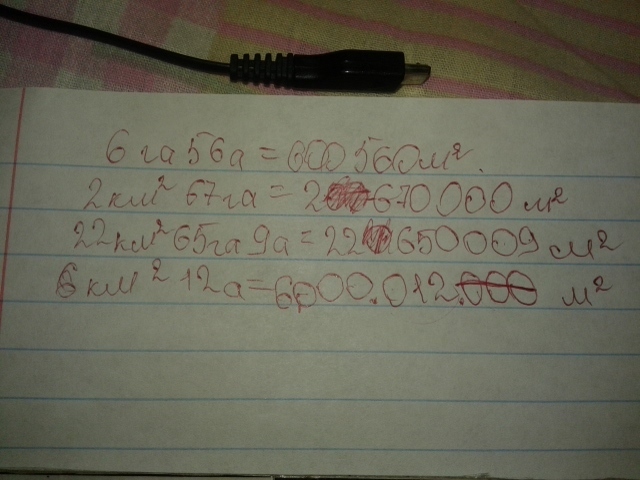 6 га 56 а = 600 560 м².
2 км² 67 га = 2 670 000 м²
22 км² 65 га 9 а = 22 650 009 м²
6 км² 12 а = 6000.012.000 м²